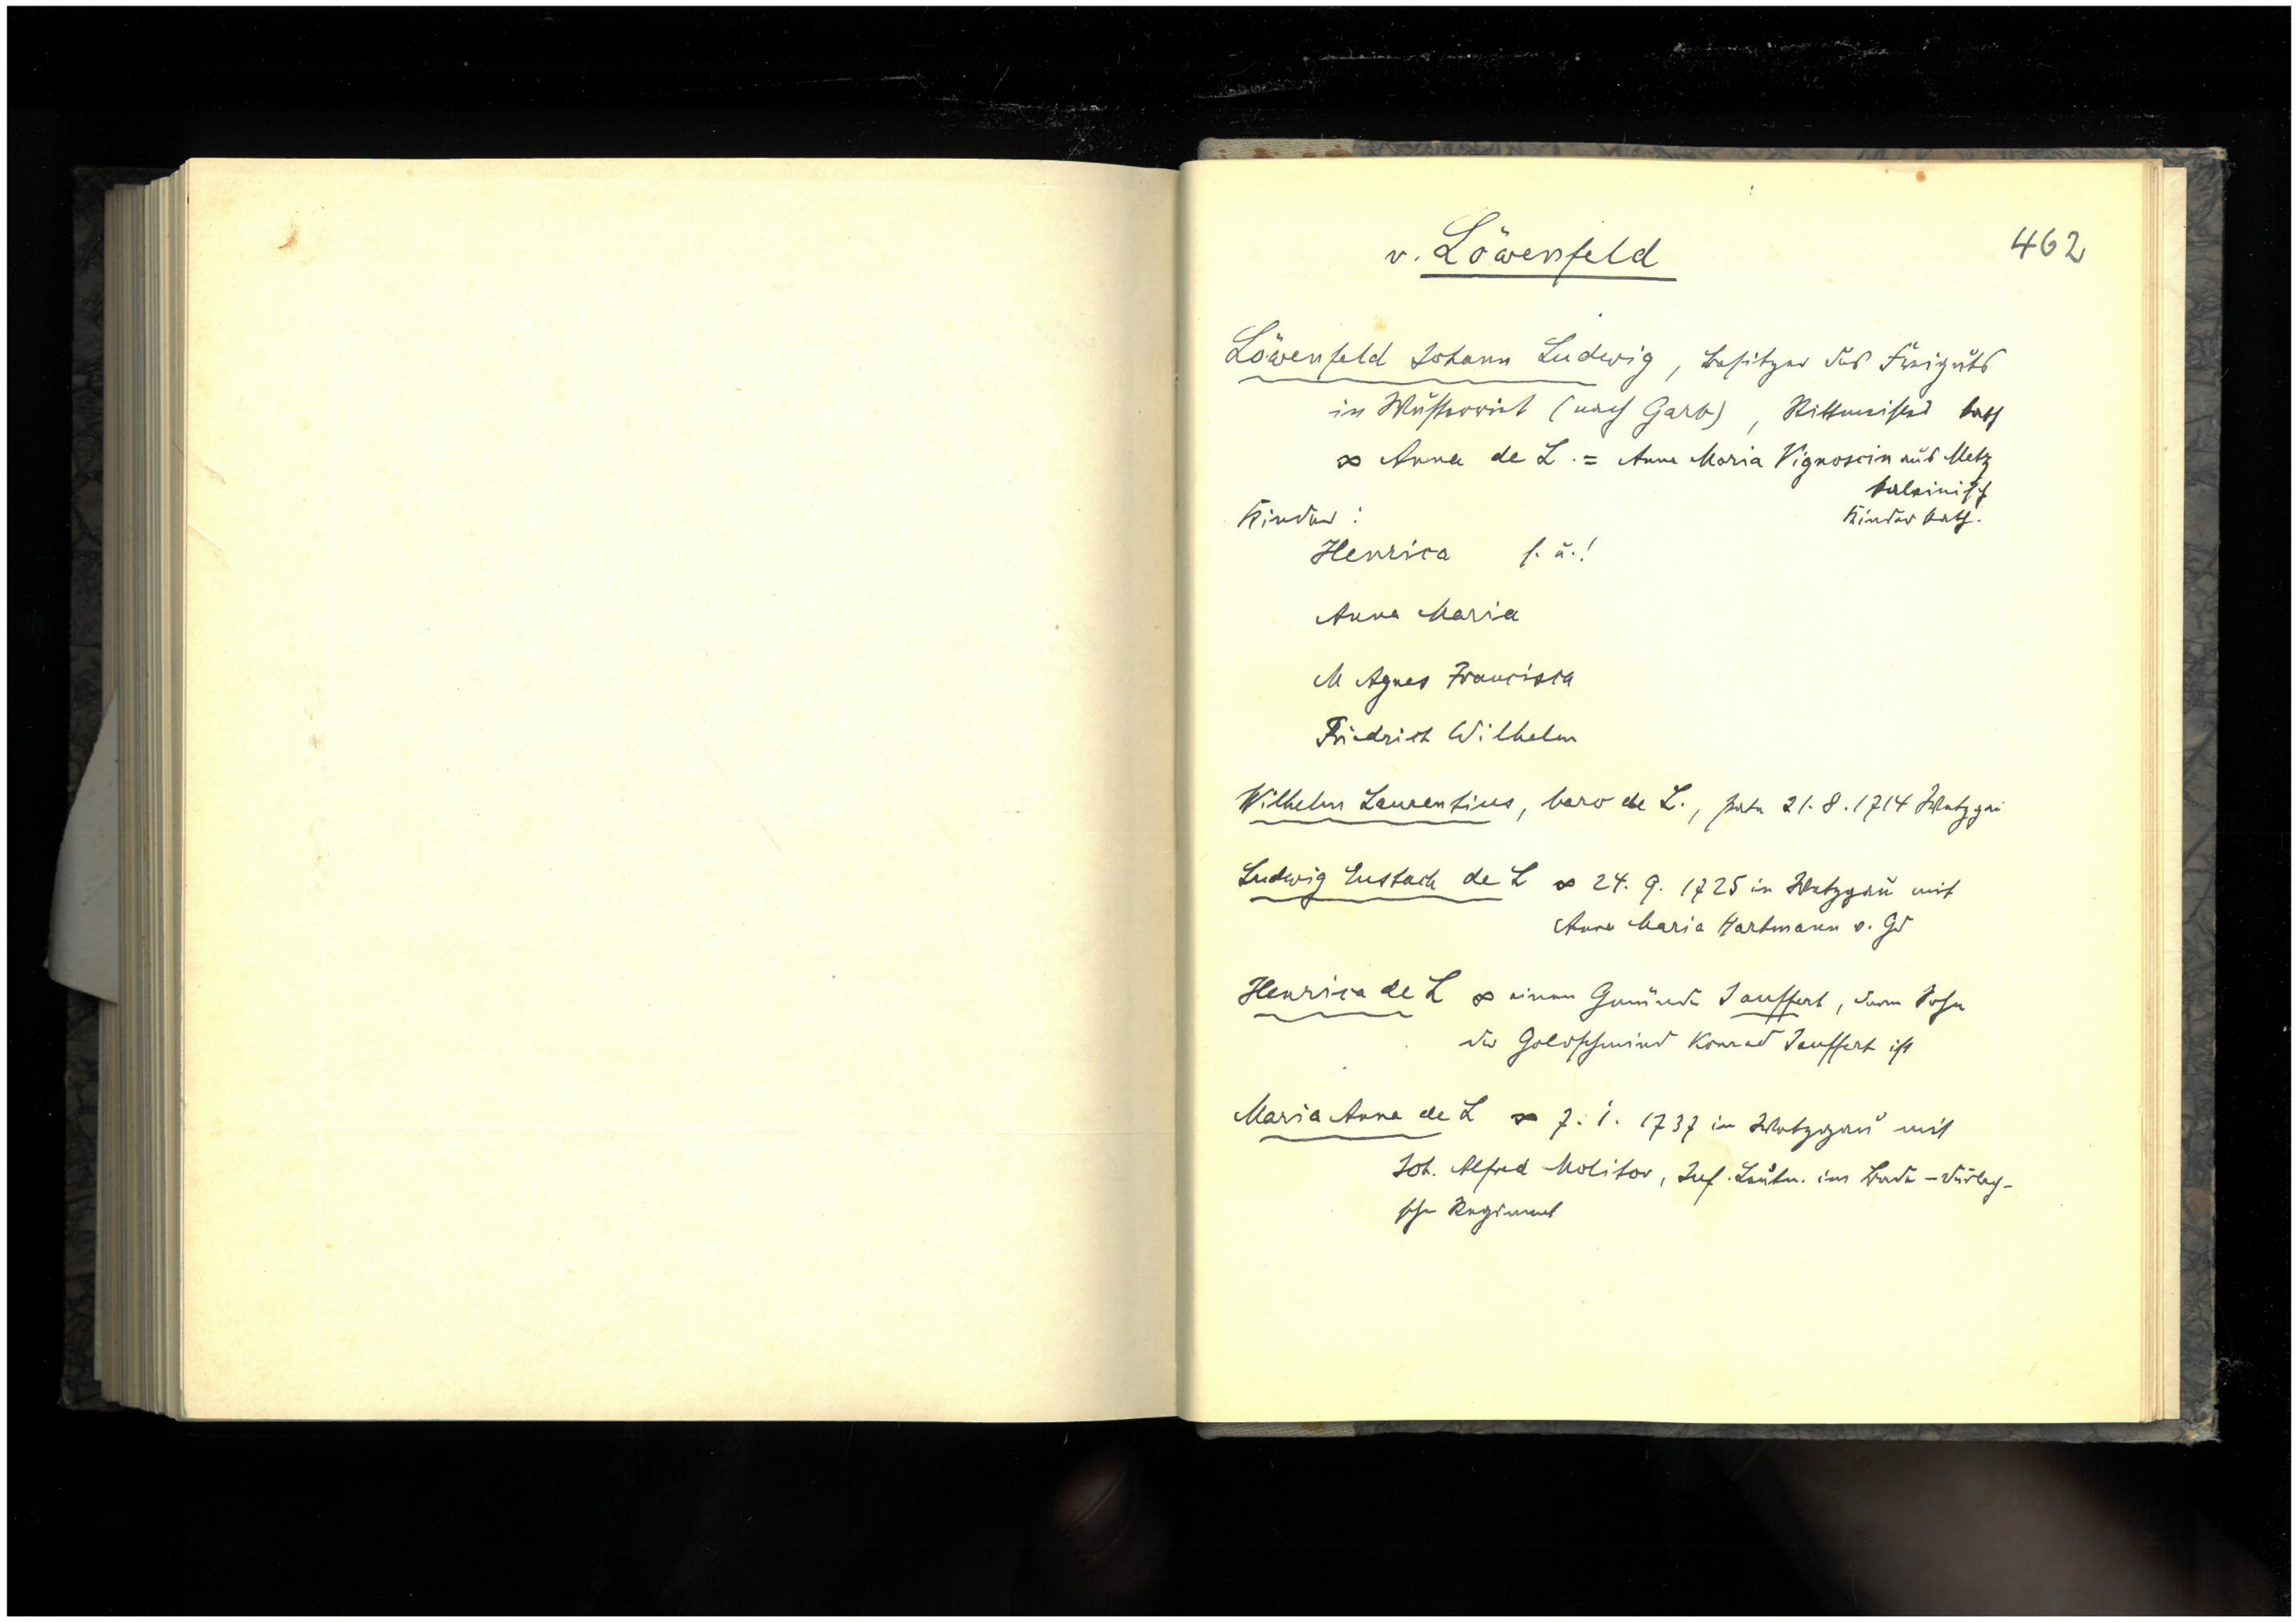 v. Löwenfeld
462
Löwenfeld Johann Ludwig, Besitzer des Freiguts
in Wustenriet (nach Garb), Rittmeister kath
∞ Anna de L. = Anna Maria Vignoscin aus Metz
kalvinisch
Kinder: Kinder kath.
Henrica s. u.!
Anna Maria
M Agnes Francisca
Friedrich Wilhelm
Wilhelm Laurentius, baro de L., Pate 21.8.1714 Wetzgau
Ludwig Eustach de L ∞ 24. 9. 1725 in Wetzgau mit
Anna Maria Hartmann v. Gd
Henrica de L ∞ einen Gmünder Jauffert, deren Sohn
der Goldschmied Konrad Jauffert ist
Maria Anna de L ∞ 7. 1. 1737 in Wetzgau mit
Joh. Alfred Molitor, Inf. Leutn. im Baden-Durlach-
schen Regiment